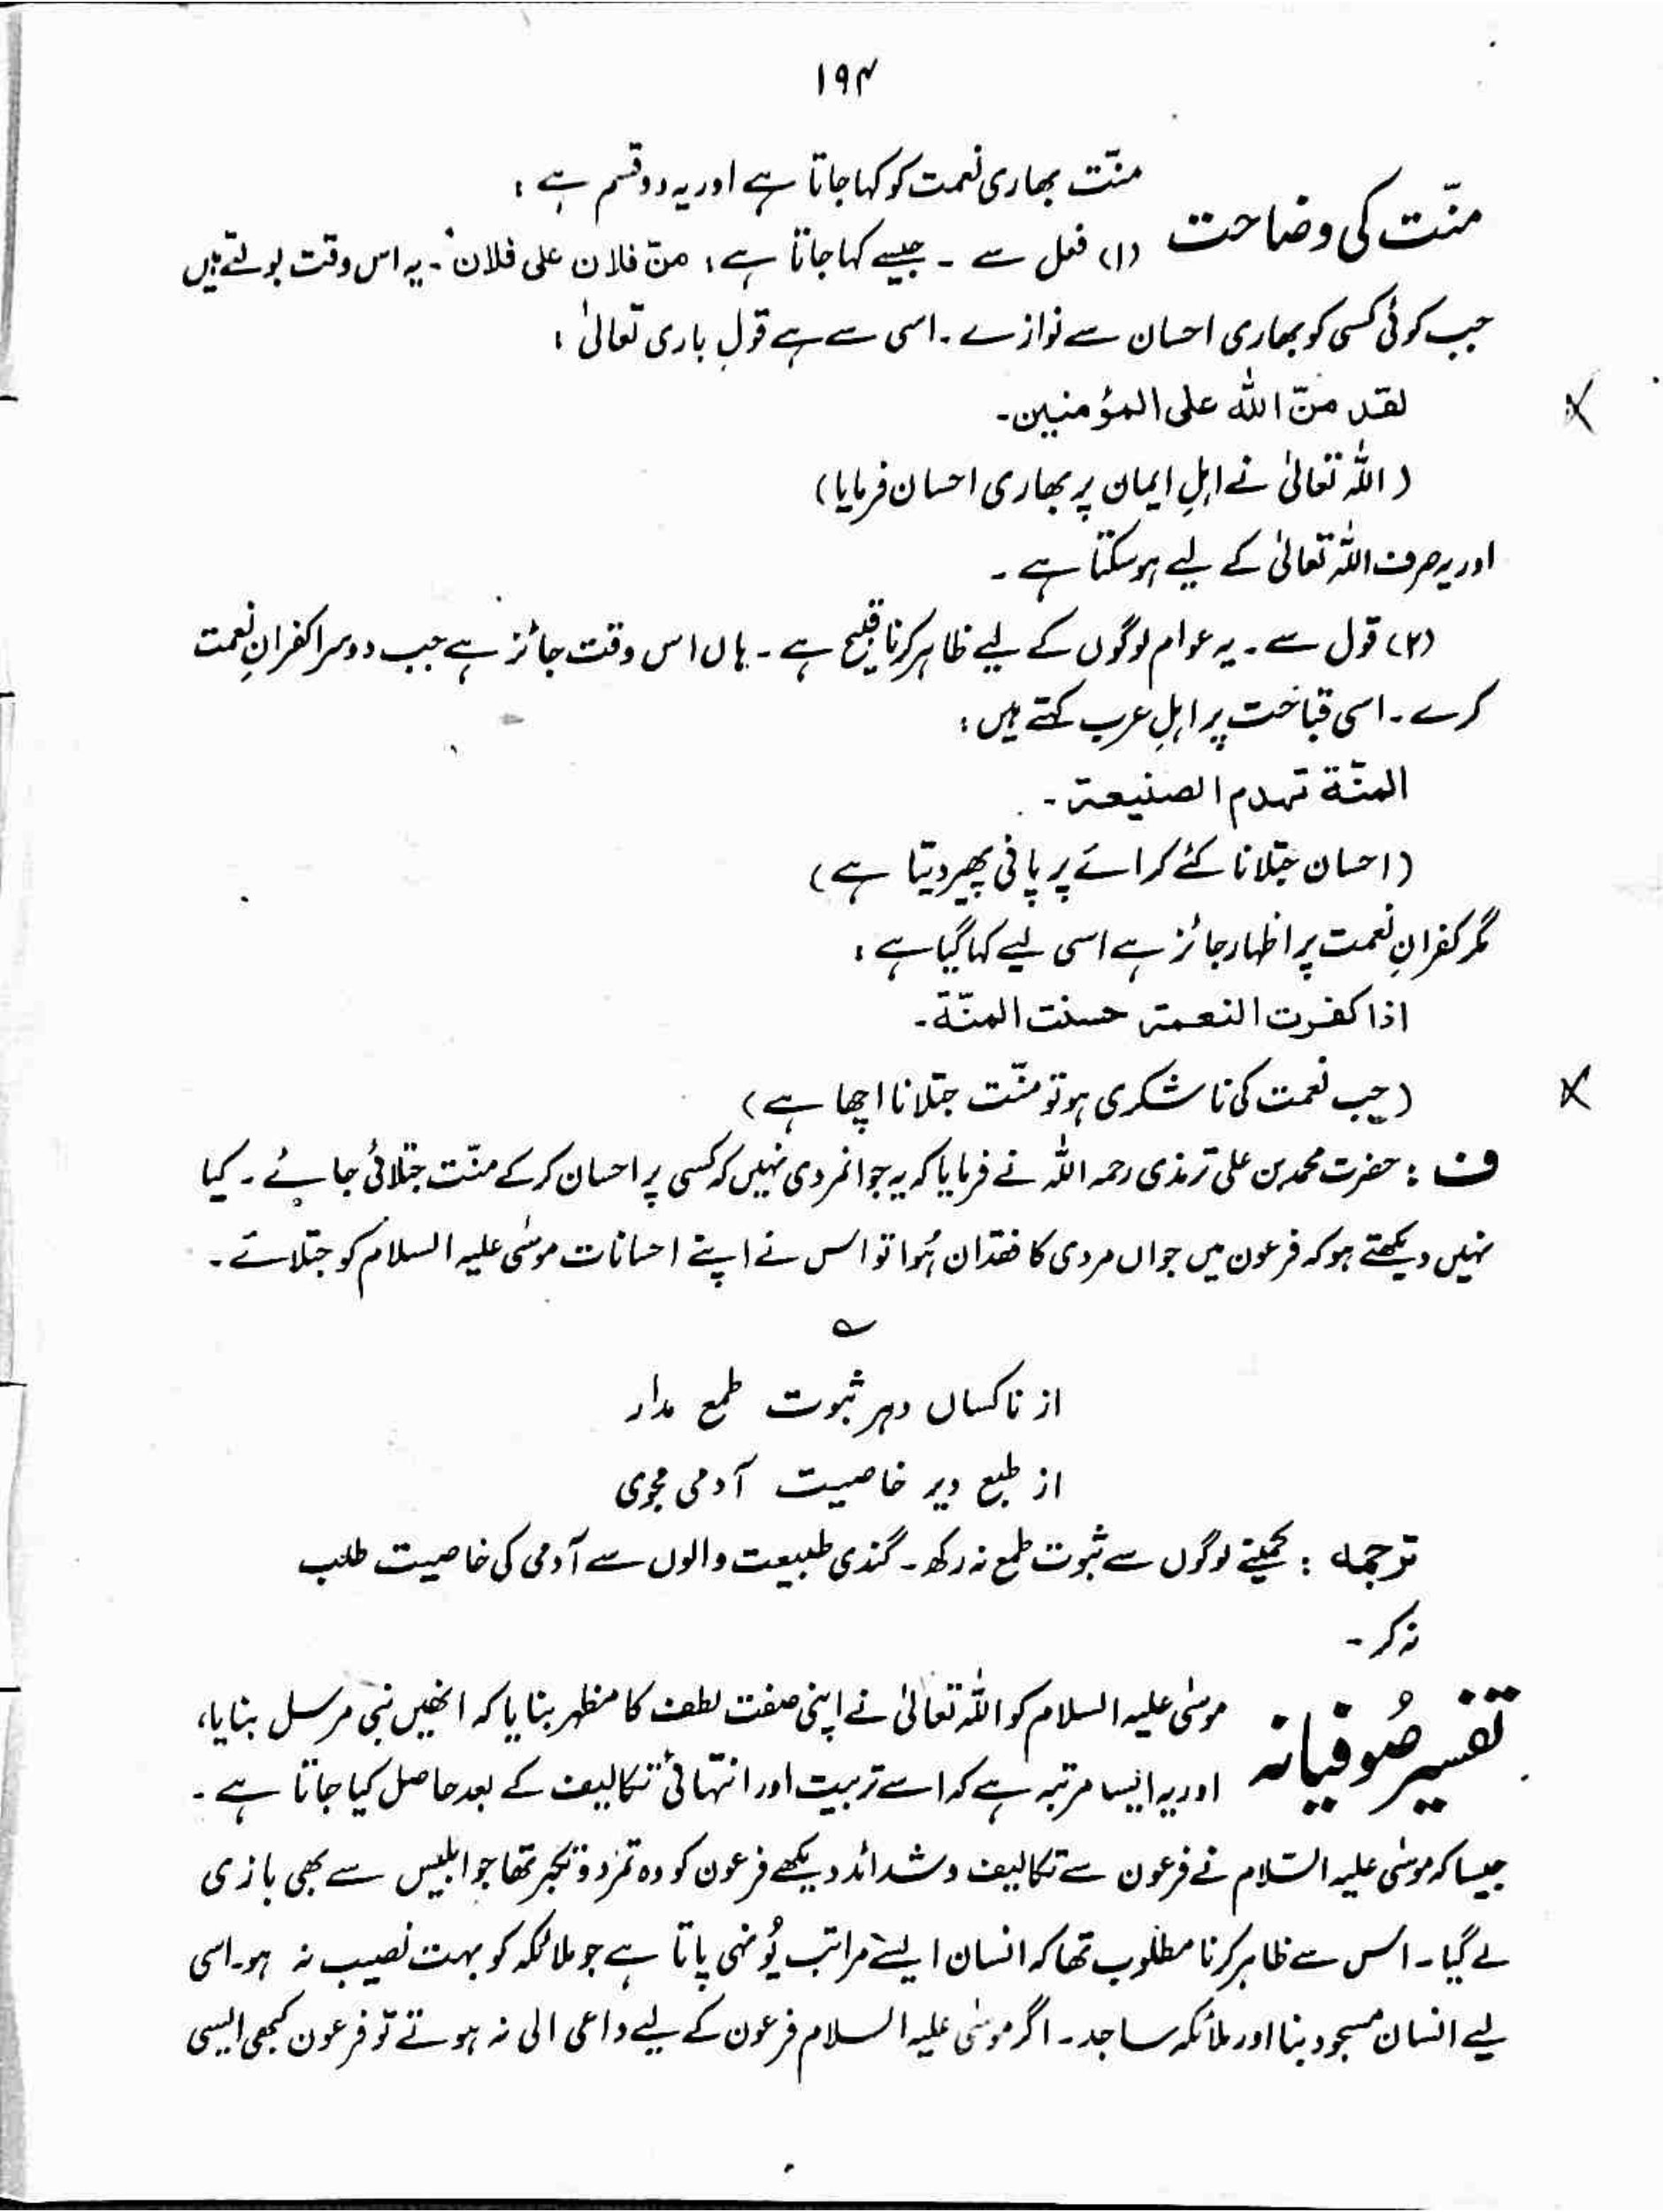 ۱۹۴
منّت کی وضاحت
منّت بھاری نعمت کو کہا جاتا ہے اور یہ دو قسم ہے :
(۱) فعل سے ۔ جیسے کہا جاتا ہے : منّ فلان علی فلان ۔ یہ اس وقت بولتے ہیں
جب کوئی کسی کو بھاری احسان سے نوازے ۔ اسی سے ہے قولِ باری تعالیٰ :
لقد منّ اللہ علی المؤمنین ۔
( اللہ تعالیٰ نے اہلِ ایمان پر بھاری احسان فرمایا )
اور یہ صرف اللہ تعالیٰ کے لیے ہو سکتا ہے ۔
(۲) قول سے ۔ یہ عوام لوگوں کے لیے ظاہر کرنا قبیح ہے ۔ ہاں اس وقت جائز ہے جب دوسرا کفرانِ نعمت
کرے ۔ اسی قباحت پر اہلِ عرب کہتے ہیں :
المنّة تہدم الصنیعة ۔
( احسان جتلانا کئے کرائے پر پانی پھیر دیتا ہے )
مگر کفرانِ نعمت پر اظہار جائز ہے اسی لیے کہا گیا ہے :
اذا کفرت النعمة حسنت المنّة ۔
( جب نعمت کی ناشکری ہو تو منّت جتلانا اچھا ہے )
ف : حضرت محمد بن علی ترمذی رحمہ اللہ نے فرمایا کہ یہ جوانمردی نہیں کہ کسی پر احسان کر کے منّت جتلائی جائے ۔ کیا
نہیں دیکھتے ہو کہ فرعون میں جواں مردی کا فقدان ہُوا تو اس نے اپنے احسانات موسٰی علیہ السلام کو جتلائے ۔
؎
از ناکساں دہر ثبوت طمع مدار
از طبع دیر خاصیت آدمی مجوی
ترجمہ : کمینے لوگوں سے ثبوت طمع نہ رکھ ۔ گندی طبیعت والوں سے آدمی کی خاصیت طلب
نہ کر ۔
تفسیر صُوفیانہ
موسٰی علیہ السلام کو اللہ تعالیٰ نے اپنی صفت لطف کا مظہر بنایا کہ انھیں نبی مرسل بنایا ،
اور یہ ایسا مرتبہ ہے کہ اسے تربیت اور انتہائی تکالیف کے بعد حاصل کیا جاتا ہے ۔
جیسا کہ موسٰی علیہ السّلام نے فرعون سے تکالیف و شدائد دیکھے فرعون کو وہ تمرّد و تکبّر تھا جو ابلیس سے بھی بازی
لے گیا ۔ اس سے ظاہر کرنا مطلوب تھا کہ انسان ایسے مراتب یُونہی پاتا ہے جو ملائکہ کو بہت نصیب نہ ہو ۔ اسی
لیے انسان مسجود بنا اور ملائکہ ساجد ۔ اگر موسٰی علیہ السلام فرعون کے لیے داعی الی نہ ہوتے تو فرعون کبھی ایسی